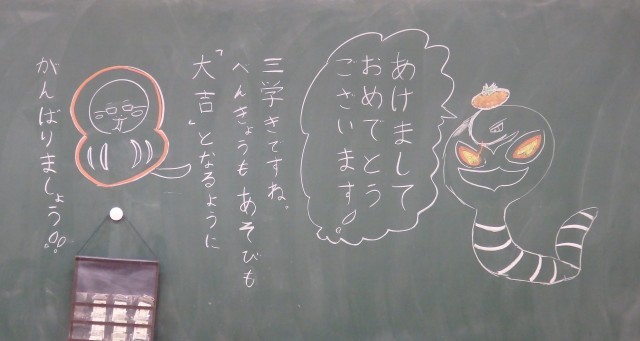 あけまして
おめでとう
ございます。
三学きですね。
べんきょうもあそびも
「大吉」となるように
がんばりましょう!!